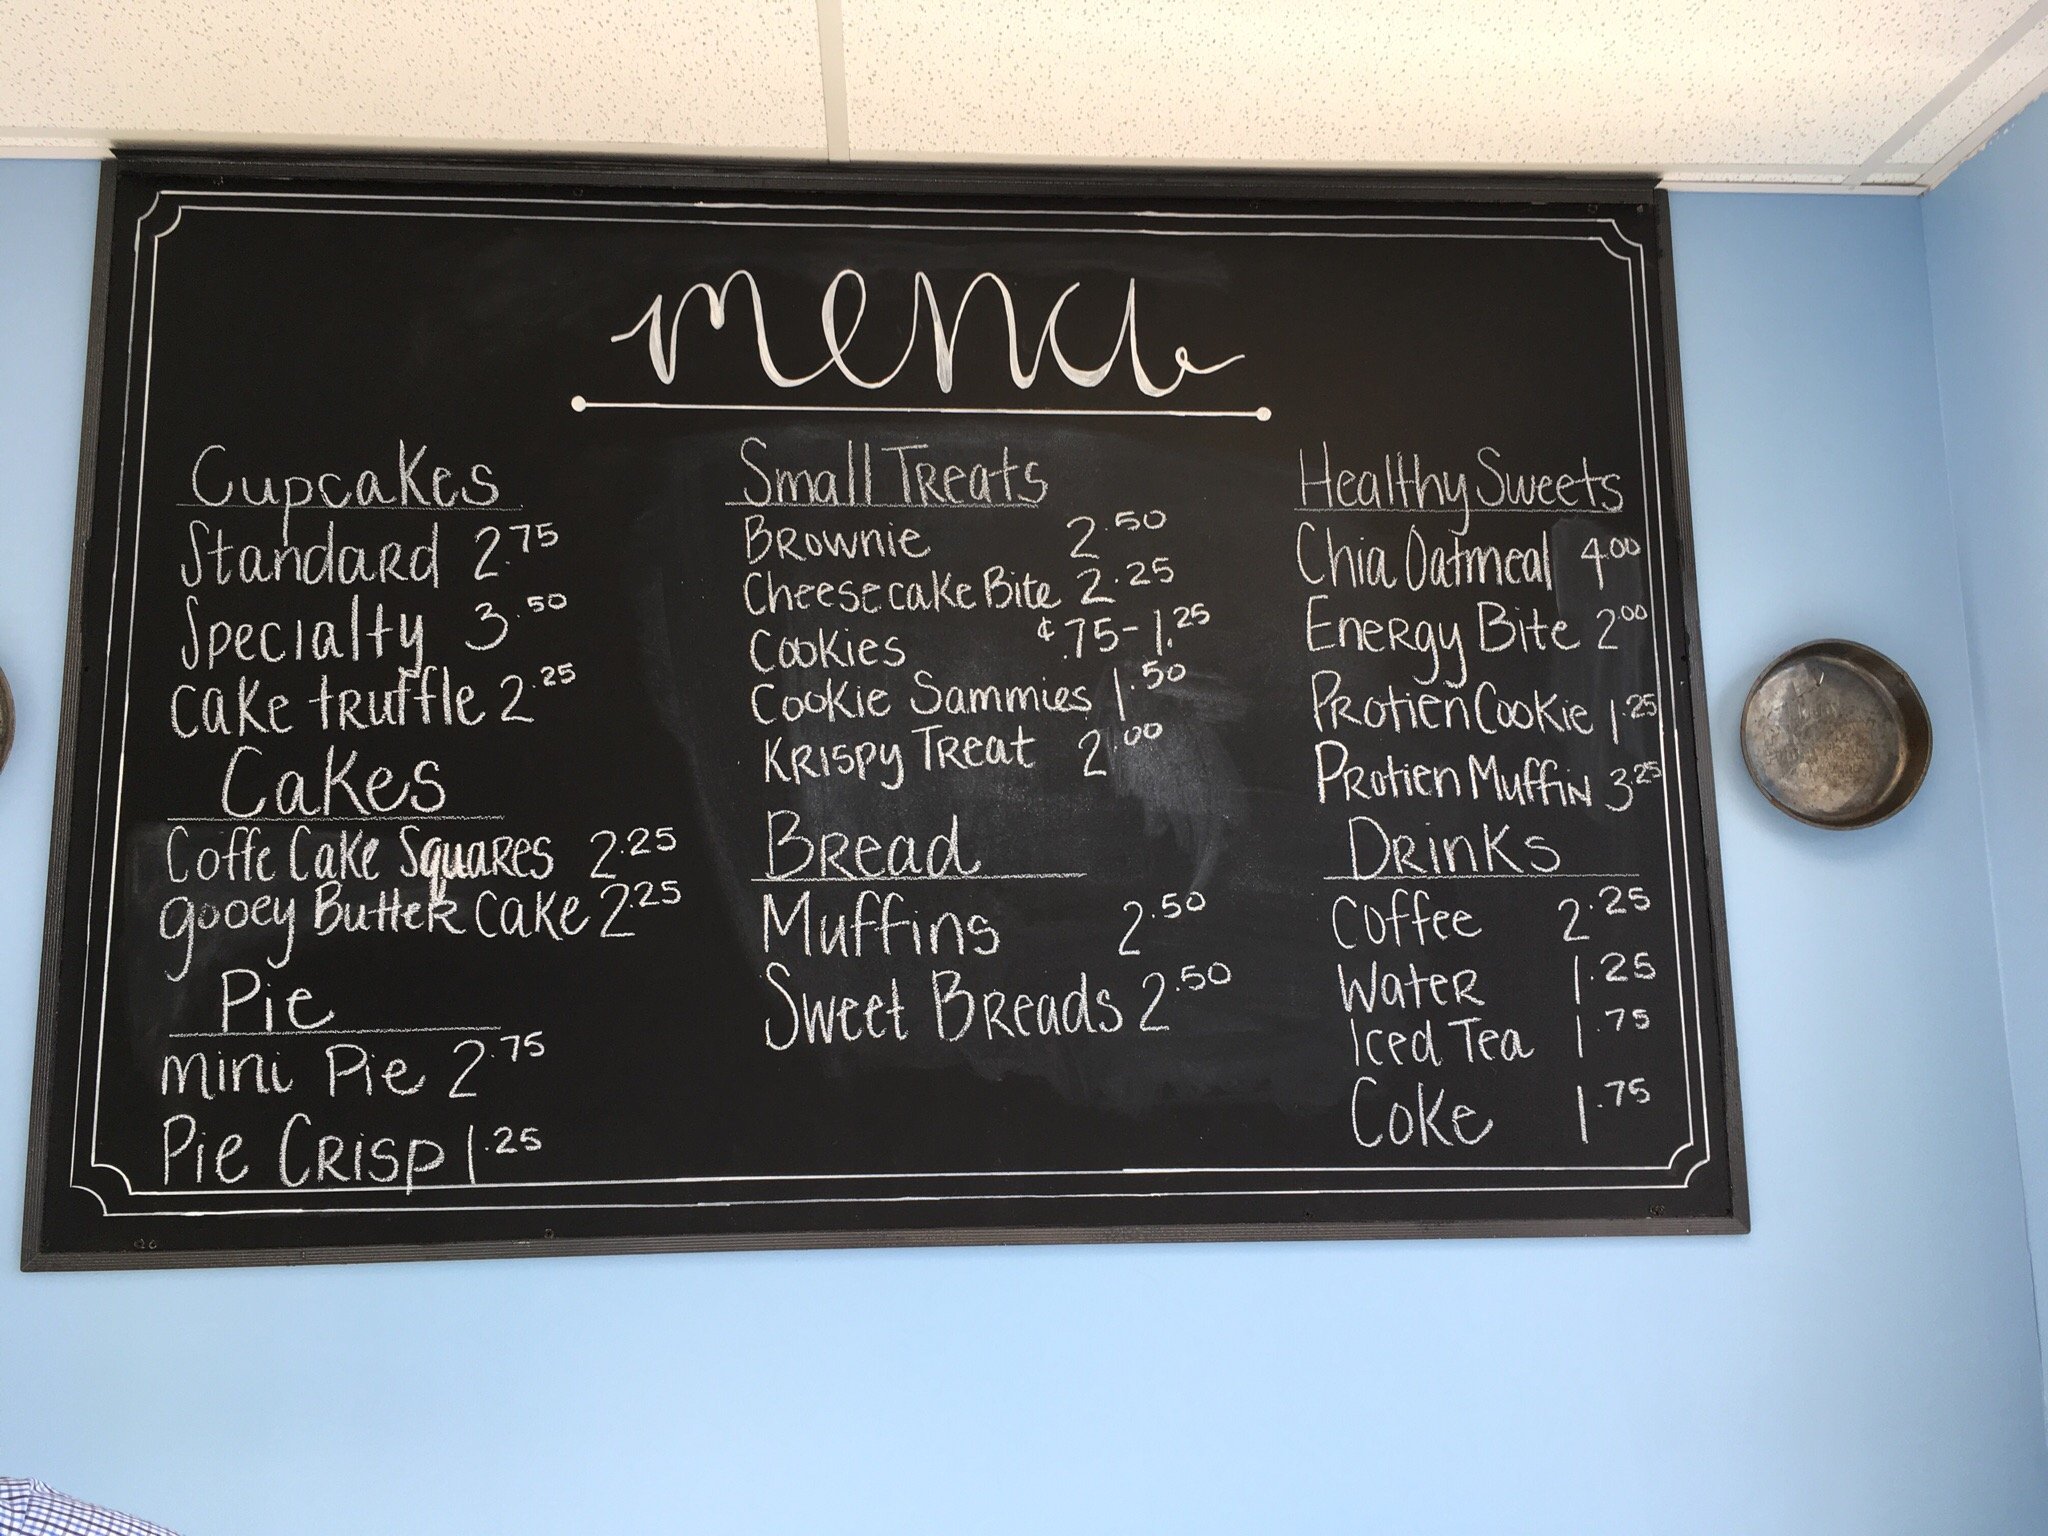 menu
Cupcakes
Standard 2.75
Specialty 3.50
cake truffle 2.25
Cakes
Coffe Cake Squares 2.25
gooey Butter Cake 2.25
Pie
mini Pie 2.75
Pie Crisp 1.25
Small Treats
Brownie 2.50
Cheesecake Bite 2.25
Cookies ¢.75-1.25
Cookie Sammies 1.50
Krispy Treat 2.00
Bread
Muffins 2.50
Sweet Breads 2.50
Healthy Sweets
Chia Oatmeal 4.00
Energy Bite 2.00
Protien Cookie 1.25
Protien Muffin 3.25
Drinks
Coffee 2.25
Water 1.25
Iced Tea 1.75
Coke 1.75